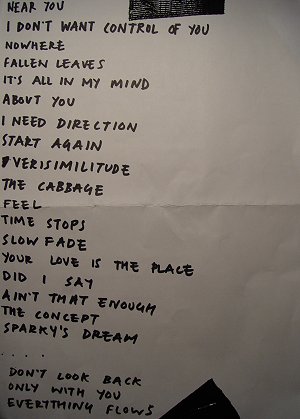 NEAR YOU
I DON'T WANT CONTROL OF YOU
NOWHERE
FALLEN LEAVES
IT'S ALL IN MY MIND
ABOUT YOU
I NEED DIRECTION
START AGAIN
VERISIMILITUDE
THE CABBAGE
FEEL
TIME STOPS
SLOW FADE
YOUR LOVE IS THE PLACE
DID I SAY
AIN'T THAT ENOUGH
THE CONCEPT
SPARKY'S DREAM
. . . .
DON'T LOOK BACK
ONLY WITH YOU
EVERYTHING FLOWS